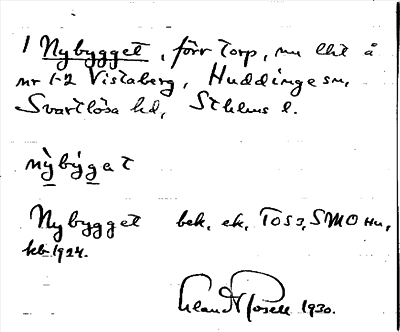 1 Nybygget, förr torp, nu lht å
nr 1-2 Vistaberg, Huddinge sn,
Svartlösa hd, Sthlms l.
nỳbýgat
Nybygget bek. ek. TOS3, SMO Hu,
kb 1924.
1930.